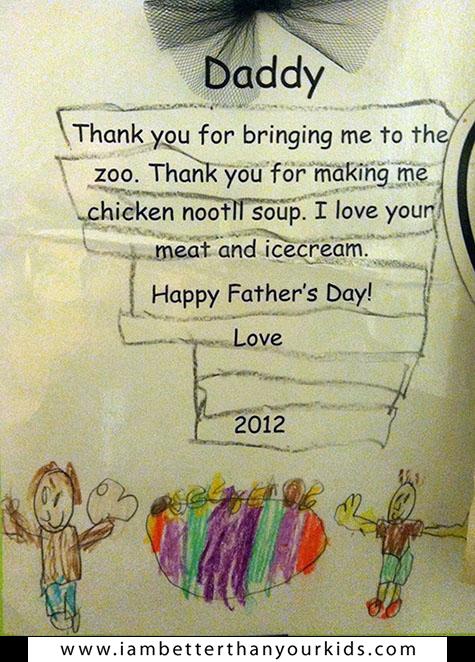 Daddy
Thank you for bringing me to the
zoo. Thank you for making me
chicken nootll soup. I love your
meat and icecream.
Happy Father's Day!
Love
2012
www.iambetterthanyourkids.com